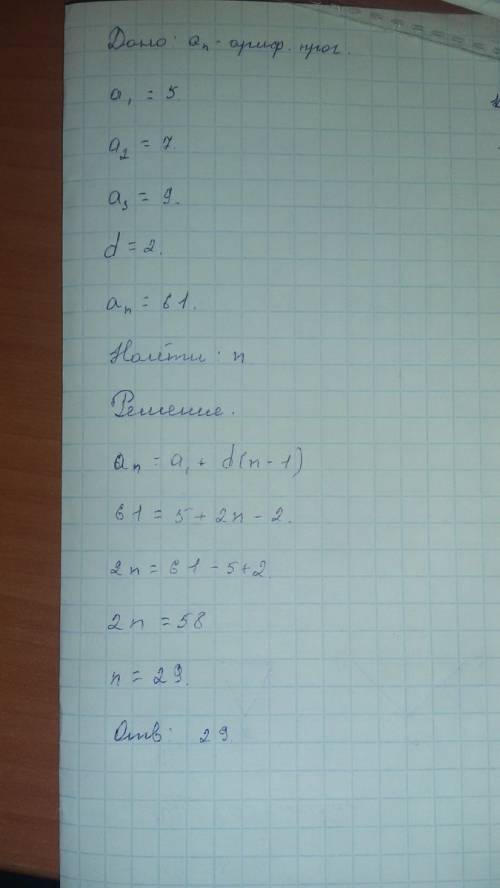 Дано: aₙ - ариф. прог.
a₁ = 5.
a₂ = 7.
a₃ = 9.
d = 2.
aₙ = 61.
Найти: n
Решение.
aₙ = a₁ + d(n-1)
61 = 5 + 2n - 2.
2n = 61 - 5 + 2.
2n = 58
n = 29.
Отв: 29